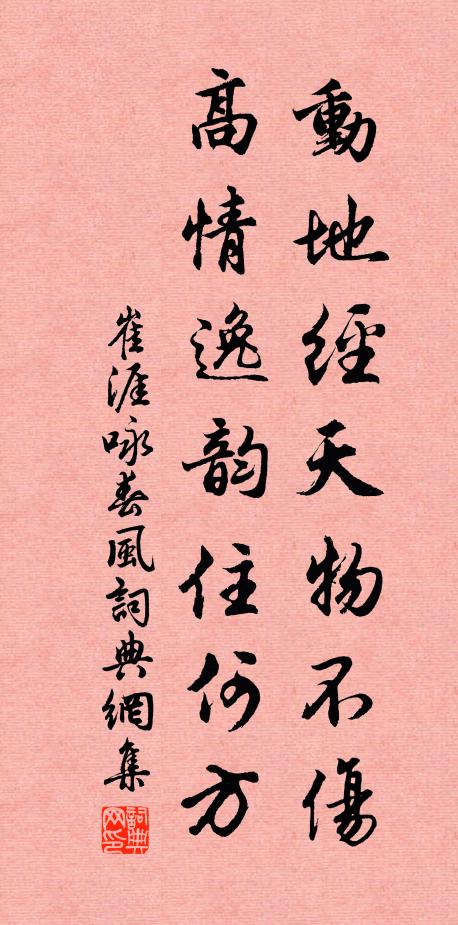 動地經天物不傷
高情逸韵住何方
崔涯咏春風詞典網集
詞典网印